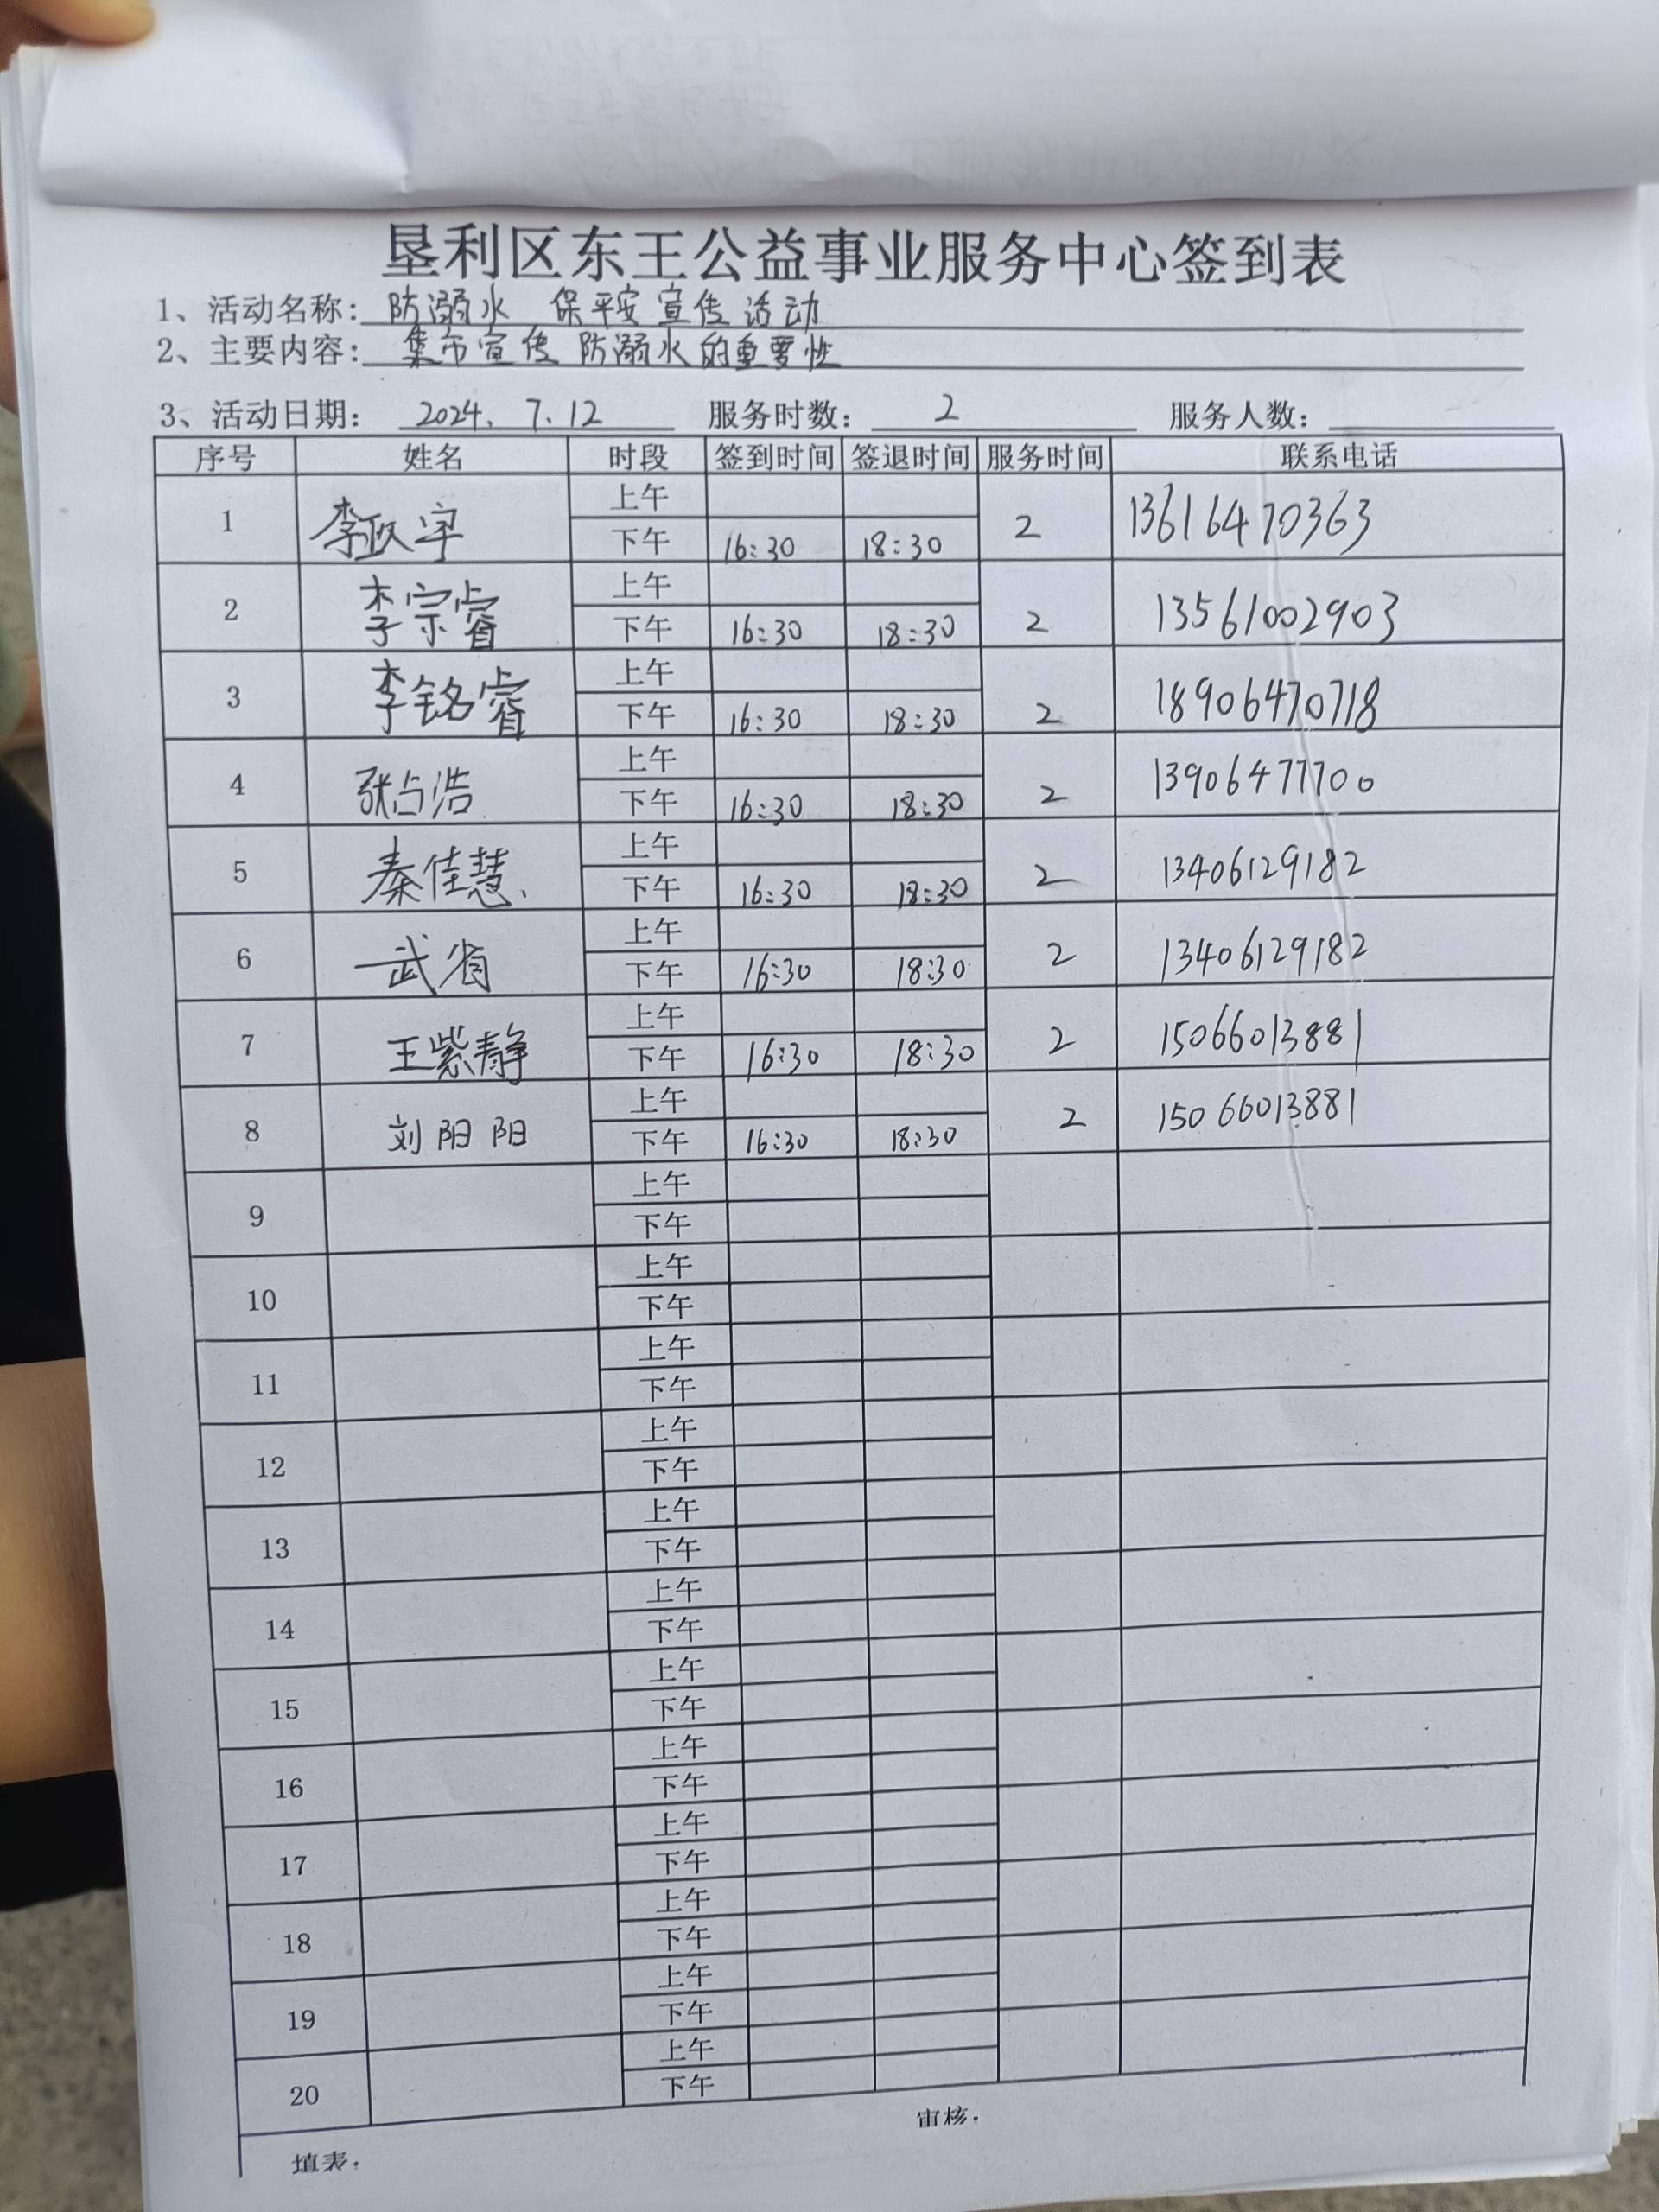 垦利区东王公益事业服务中心签到表
1、活动名称：防溺水 保平安宣传活动
2、主要内容：集市宣传防溺水的重要性
3、活动日期：2024.7.12 服务时数：2 服务人数：
序号 姓名 时段 签到时间 签退时间 服务时间 联系电话
上午
1 李跃宇 2 13616470363
下午 16:30 18:30
上午
2 李宗睿 2 13561002903
下午 16:30 18:30
上午
3 李铭睿 2 18906470718
下午 16:30 18:30
上午
4 张占浩 2 13906477700
下午 16:30 18:30
上午
5 秦佳慧 2 13406129182
下午 16:30 18:30
上午
6 武省 2 13406129182
下午 16:30 18:30
上午
7 王紫静 2 15066013881
下午 16:30 18:30
上午
8 刘阳阳 2 15066013881
下午 16:30 18:30
上午
9
下午
上午
10
下午
上午
11
下午
上午
12
下午
上午
13
下午
上午
14
下午
上午
15
下午
上午
16
下午
上午
17
下午
上午
18
下午
上午
19
下午
上午
20
下午
填表： 审核：